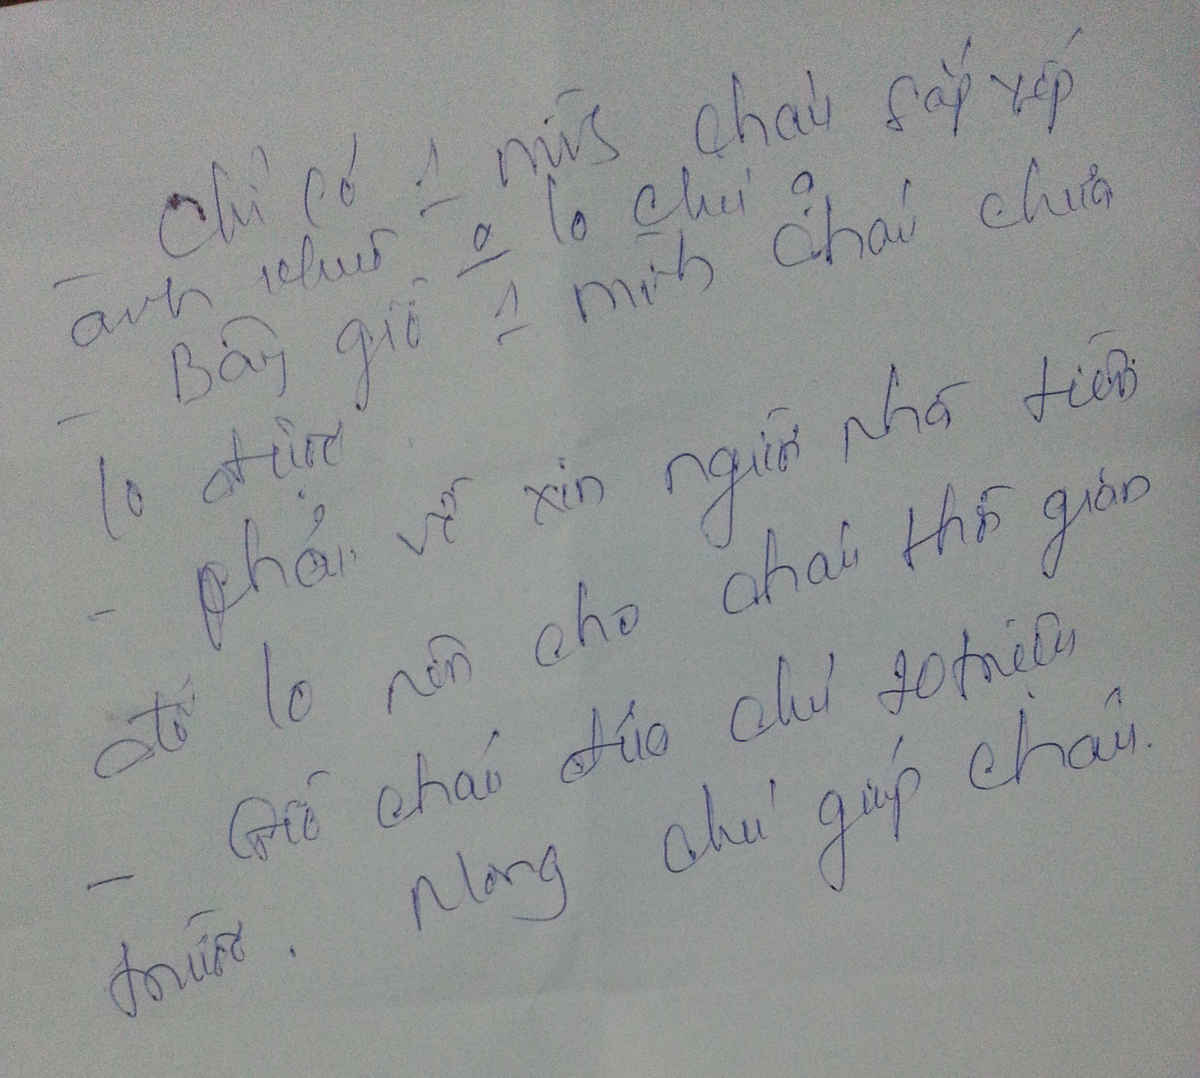 - Chỉ có 1 cháu sắp xếp
anh lo chú ạ
- Bây giờ 1 mình cháu chưa
lo được
- phải về xin người nhà tiền
để lo nên cho cháu thời gian
- Giờ cháu đưa chú 20 triệu
trước. Mong chú giúp cháu.